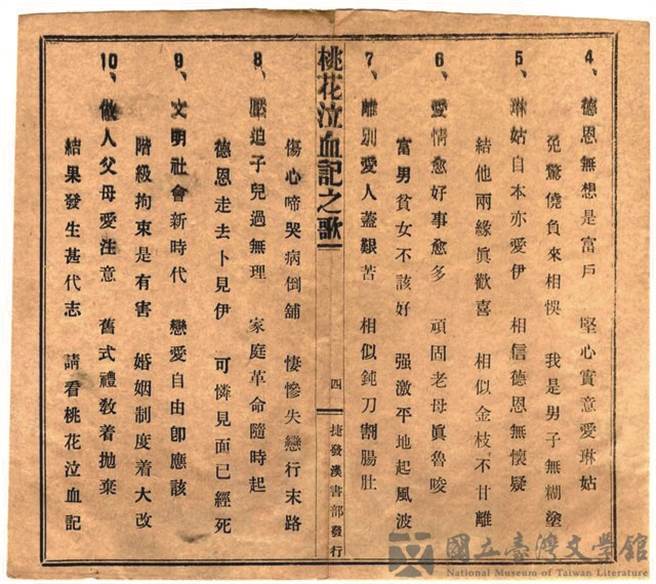 4、德恩無想是富戶　堅心實意愛琳姑
免驚僥負來相悞　我是男子無糊塗
5、琳姑自本亦愛伊　相信德恩無懷疑
結他兩緣眞歡喜　相似金枝不甘離
6、愛情愈好事愈多　頑固老母眞魯唆
富男貧女不該好　强激平地起風波
7、離別愛人盖艱苦　相似鈍刀割腸肚
桃花泣血記之歌
四
捷發漢書部發行
傷心啼哭病倒舖　悽慘失戀行末路
8、壓迫子兒過無理　家庭革命隨時起
德恩走去卜見伊　可憐見面已經死
9、文明社會新時代　戀愛自由卽應該
階級拘束是有害　婚姻制度着大改
10、做人父母愛注意　舊式禮敎着拋棄
結果發生甚代志　請看桃花泣血記
國立臺灣文學館
National Museum of Taiwan Literature